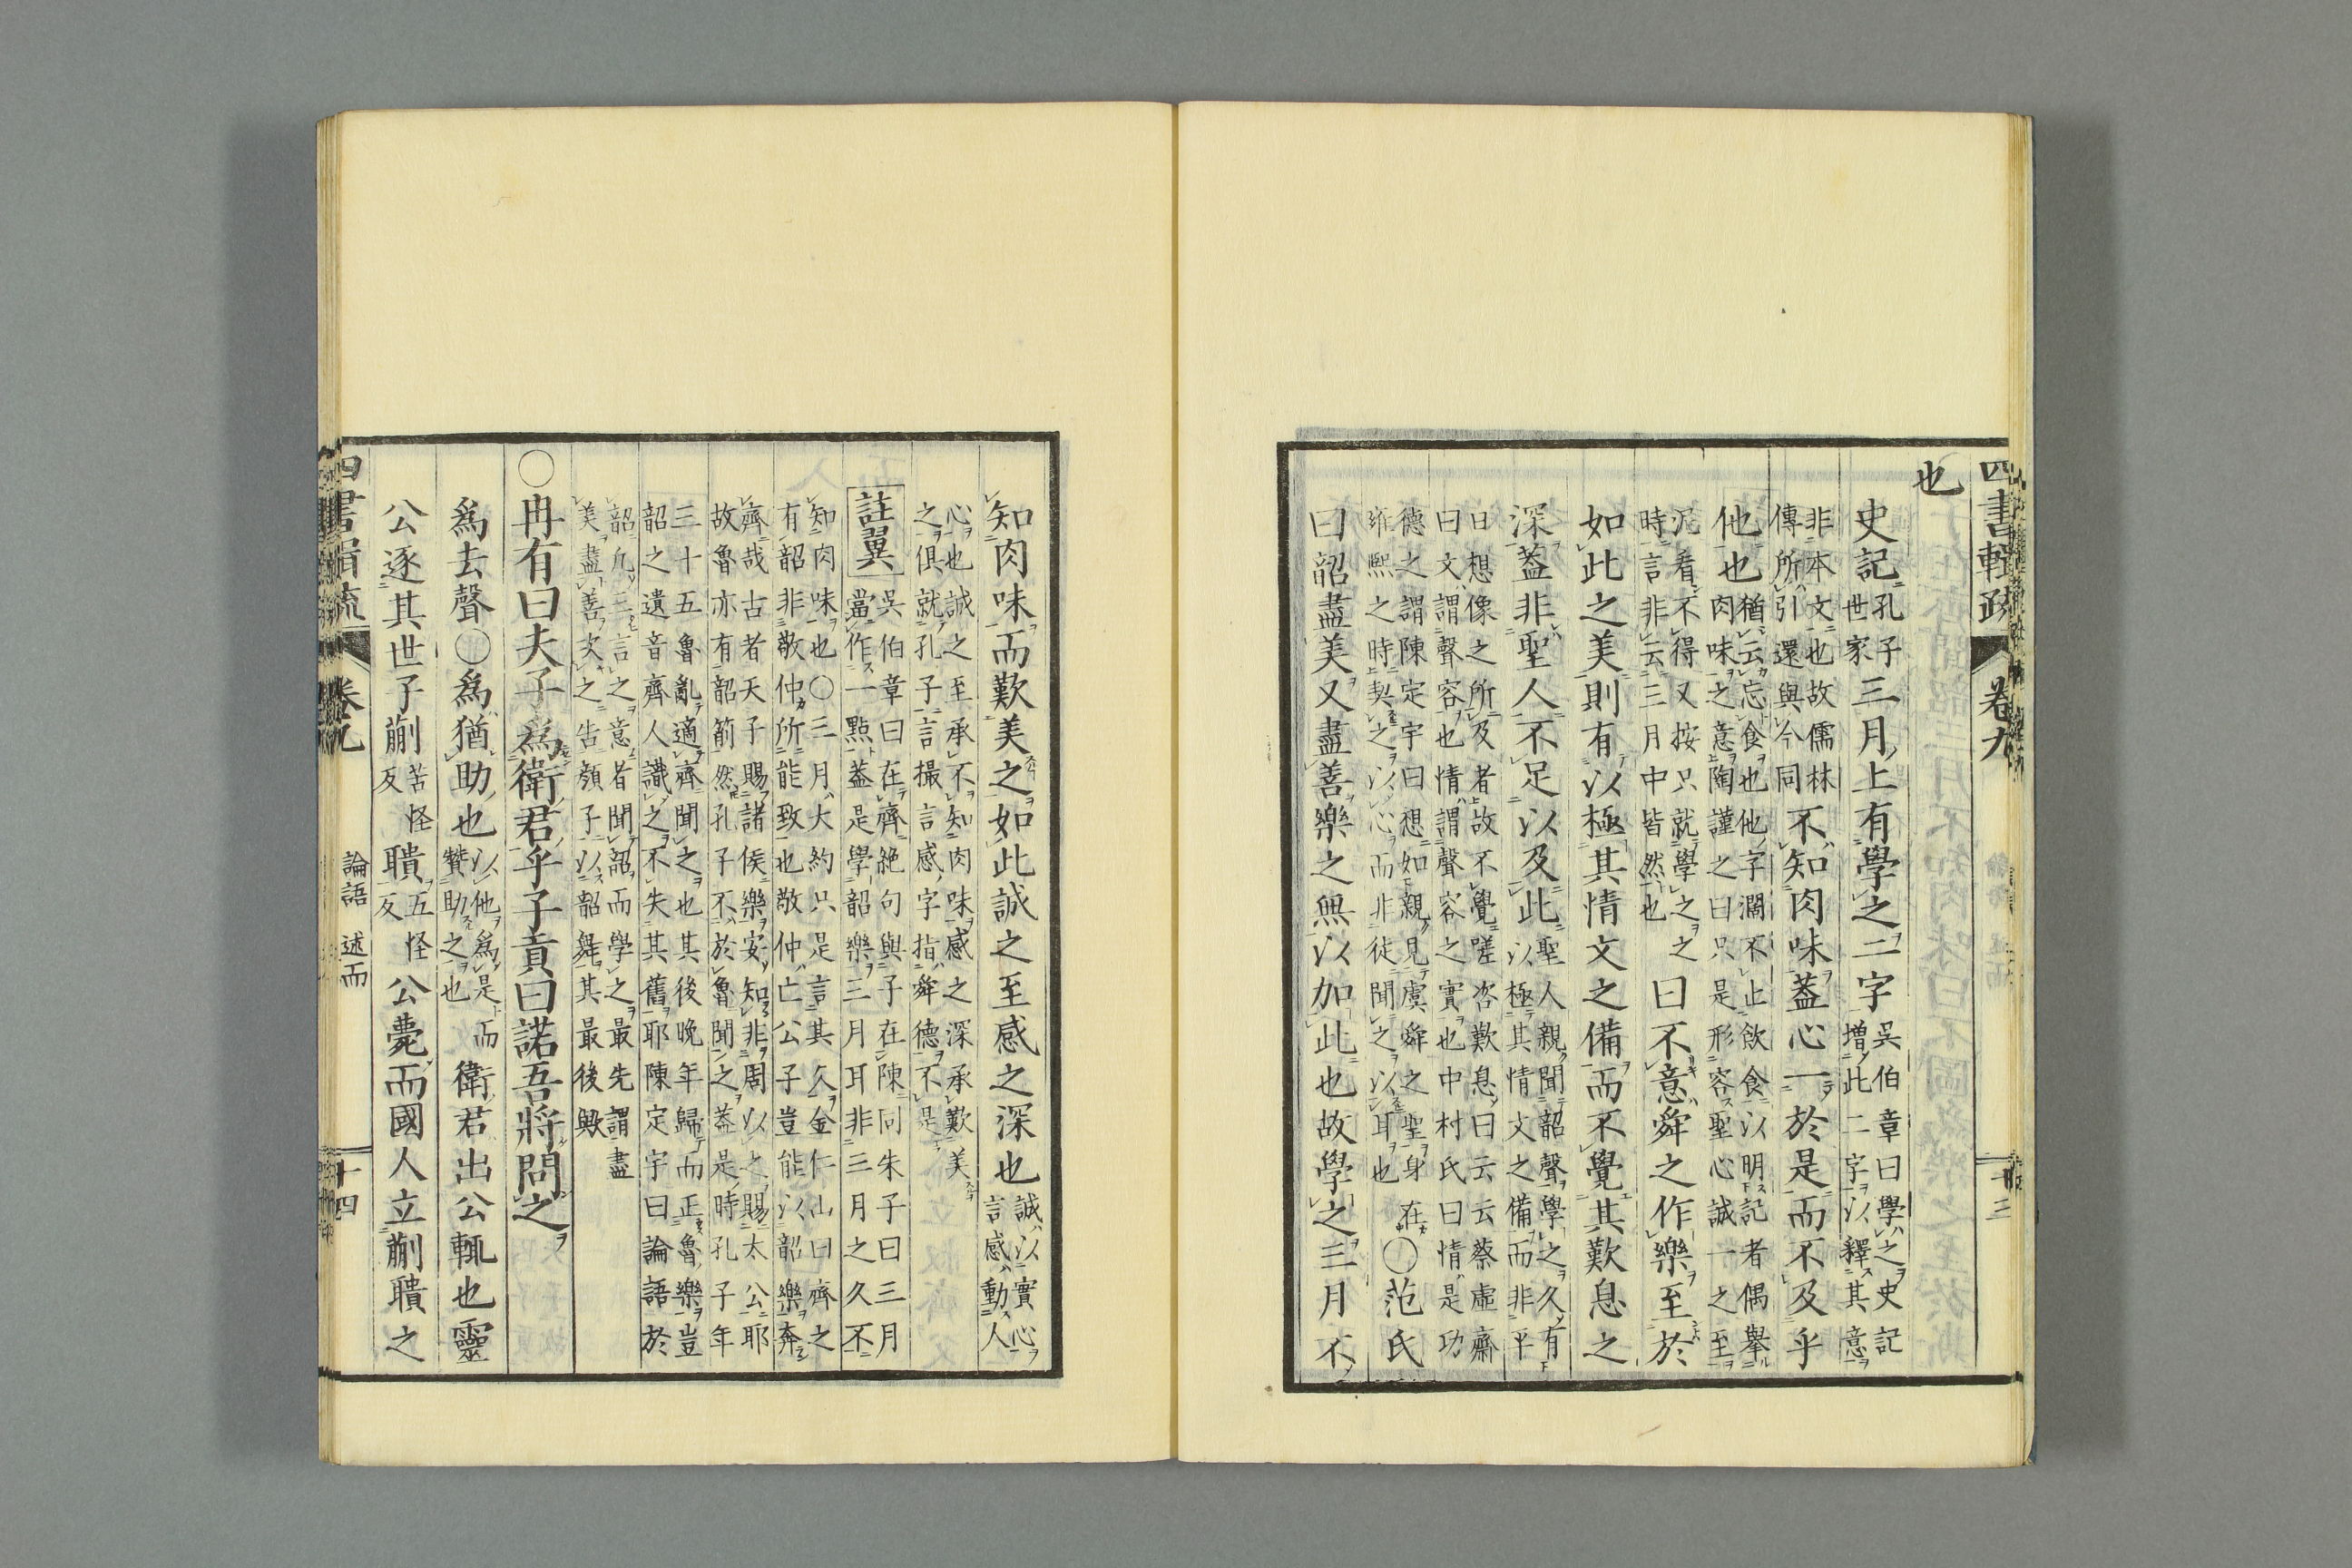 四書輯疏 卷九 十三
也
史記孔子世家三月上有學之二字吳伯章曰學之史記
增此二字以釋其意
非本文也故儒林
傳所引還與今同不知肉味蓋心一於是而不及乎
他也猶云忘食也他字濶不止飲食以明記者偶擧
肉味之意陶謹之曰只是形容聖心誠一之至
泥看不得又按只就學之之
時言非云三月中皆然也曰不意舜之作樂至於
如此之美則有以極其情文之備而不覺其歎息之
深蓋非聖人不足以及此聖人親聞韶聲學之久有
以極其情文之備而非平
日想像之所及者故不覺嗟咨歎息曰云云蔡虛齋
曰文謂聲容也情謂聲容之實也中村氏曰情是功
德之謂陳定宇曰想如親見虞舜之聖身在
雍熙之時契之以心而非徒聞之以耳也○范氏
曰韶盡美又盡善樂之無以加此也故學之三月不
知肉味而歎美之如此誠之至感之深也誠以實心
言感動人
心也誠之至承不知肉味感之深承歎美
之俱就孔子言撮言感字指舜德不是
註翼吳伯章曰在齊絶句與子在陳同朱子曰三月
當作一點蓋是學韶樂三月耳非三月之久不
知肉味也○三月大約只是言其久金仁山曰齊之
有韶非敬仲所能致也敬仲亡公子豈能以韶樂奔
齊哉古者天子賜諸侯樂安知非周以之賜太公耶
故魯亦有韶箾然孔子不於魯聞之蓋是時孔子年
三十五魯亂適齊聞之也其後晩年歸而正魯樂豈
韶之遺音齊人識之不失其舊耶陳定宇曰論語於
韶凡三言之意者聞韶而學之最先謂盡
美盡善次之告顏子以韶舞其最後歟
○冉有曰夫子爲衛君乎子貢曰諾吾將問之
爲去聲○爲猶助也以他爲是而
贊助之也衛君出公輒也靈
公逐其世子蒯苦怪反聵五怪反公薨而國人立蒯聵之
論語 述而
十四